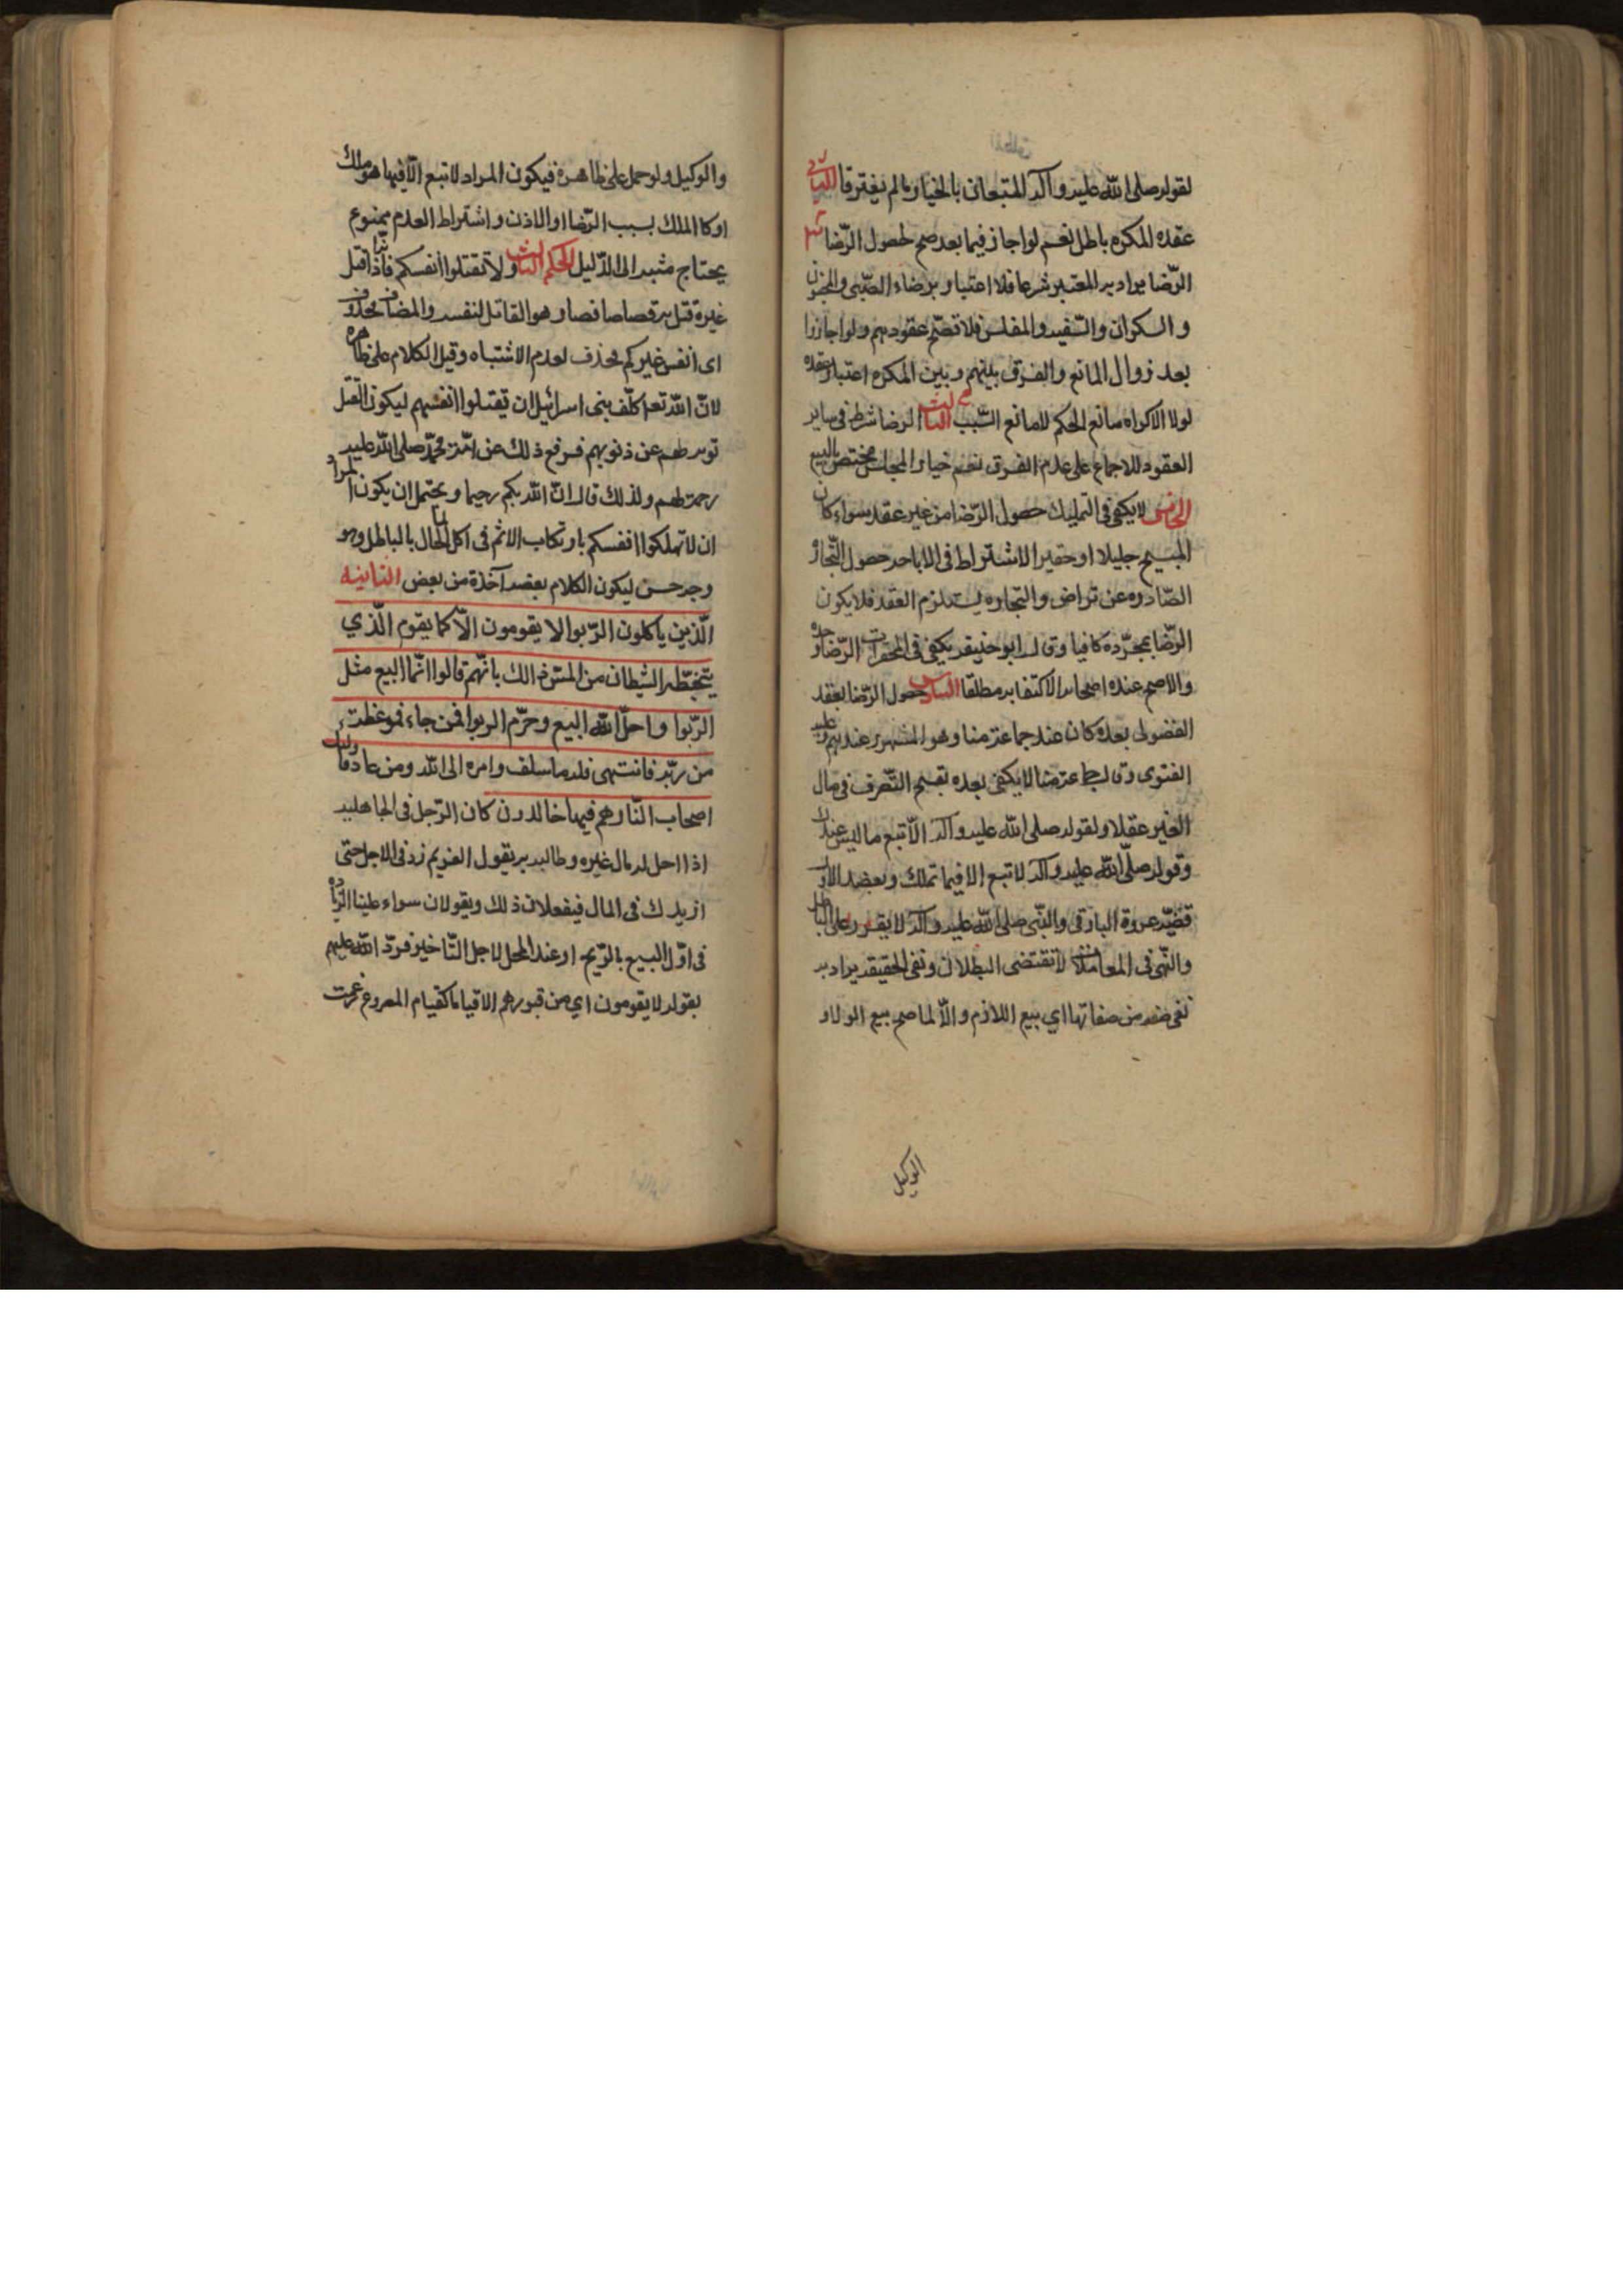 لقوله صلى الله عليه وآله المتبعان بالخيار مالم يفترقا الثاني
عقده المكره باطل نعم لو اجاز فيما بعد صح لحصول الرّضا
الرّضا يراد به المعتبر شرعا فلا اعتبار برضاء الصّبي والمجنون
و السكران والسّفيه والمفلس فلا تصحّ عقودهم ولو اجازوا
بعد زوال المانع والفرق بينهم وبين المكره اعتبار عقده
لولا الاكراه مانع الحكم لا مانع السّبب الرضا شرط فى ساير
العقود للاجماع على عدم الفرق نعم خيار المجلس مختص بالبيع
الخامس لا يكفى فى التمليك حصول الرّضا من غير عقد سواء كان
المبيح جليلا او حقيرا لاشتراط فى الاباحه حصول التّجارة
الصّادره عن تراض والتجاره يستلزم العقد فلا يكون
الرّضا بمجرّده كافيا وقال ابو حنيفه يكفى فى المحقرات الرّضا
والاصح عنده اصحابه الاكتفا به مطلقا السادس حصول الرّضا بعقد
الفضولى بعده كان عند جماعة منا وهو المشهور عندهم وعليه
الفتوى وقال جماعة منا لا يكفى بعده تقبيح التّصرف فى مال
الغير عقلا ولقوله صلى الله عليه وآله الّا تبع ما ليس عندك
وقوله صلّى الله عليه وآله لا تبع الا فيما تملك وبعضد الاول
قضيّه عروة البارقى والنّبى صلى الله عليه وآله لا يقرر على الباطل
والنّهى فى المعاملات لا تقتضى البطلان ونفى الحقيقه يراد به
نفى صفه من صفاتها اي بيع اللازم والّا لما صح بيع الولى و
الوكيل
والوكيل ولو حمل على ظاهره فيكون المراد لا تبع الّا فيما هو ملك
او كالملك بسبب الرّضا او الاذن واشتراط العدم ممنوع
يحتاج مثبه الى الدّليل الحكم الثالث ولا تقتلوا انفسكم فاذا قتل
غيره قتل به قصاصا فصار هو القاتل لنفسه والمضاف محذوف
اى انفس غيركم بحذف لعدم الاشتباه وقيل الكلام على ظاهره
لانّ الله تعالى كلّف بنى اسرائيل ان يقتلوا انفسهم ليكون القتل
توبة لهم عن ذنوبهم فرفع ذلك عن امّة محمّد صلى الله عليه
رحمة لهم ولذلك قال انّ الله بكم رحيما ويحتمل ان يكون المراد
ان لا تهلكوا انفسكم بارتكاب الاثم فى اكل المال بالباطل وهو
وجه حسن ليكون الكلام بعضه آخذة من بعض الثانيه
الّذين ياكلون الرّبوا لا يقومون الّا كما يقوم الّذي
يتخبّطه الشيطان من المسّ ذالك بانّهم قالوا انّما البيع مثل
الرّبوا واحلّ الله البيع وحرّم الربوا فمن جاءه موعظة
من ربّه فانتهى فله ما سلف وامره الى الله ومن عاد فاولئك
اصحاب النّار هم فيها خالدون كان الرّجل فى الجاهليه
اذا احل له مال غيره وطالبه به يقول الغريم زد فى الاجل حتى
ازيدك فى المال فيفعلان ذلك ويقولان سواء علينا الزيادة
فى اوّل البيع بالرّبح او عند المحل لاجل التّاخير فردّ الله عليهم
بقوله لا يقومون اي من قبورهم الا قياما كقيام المصروع